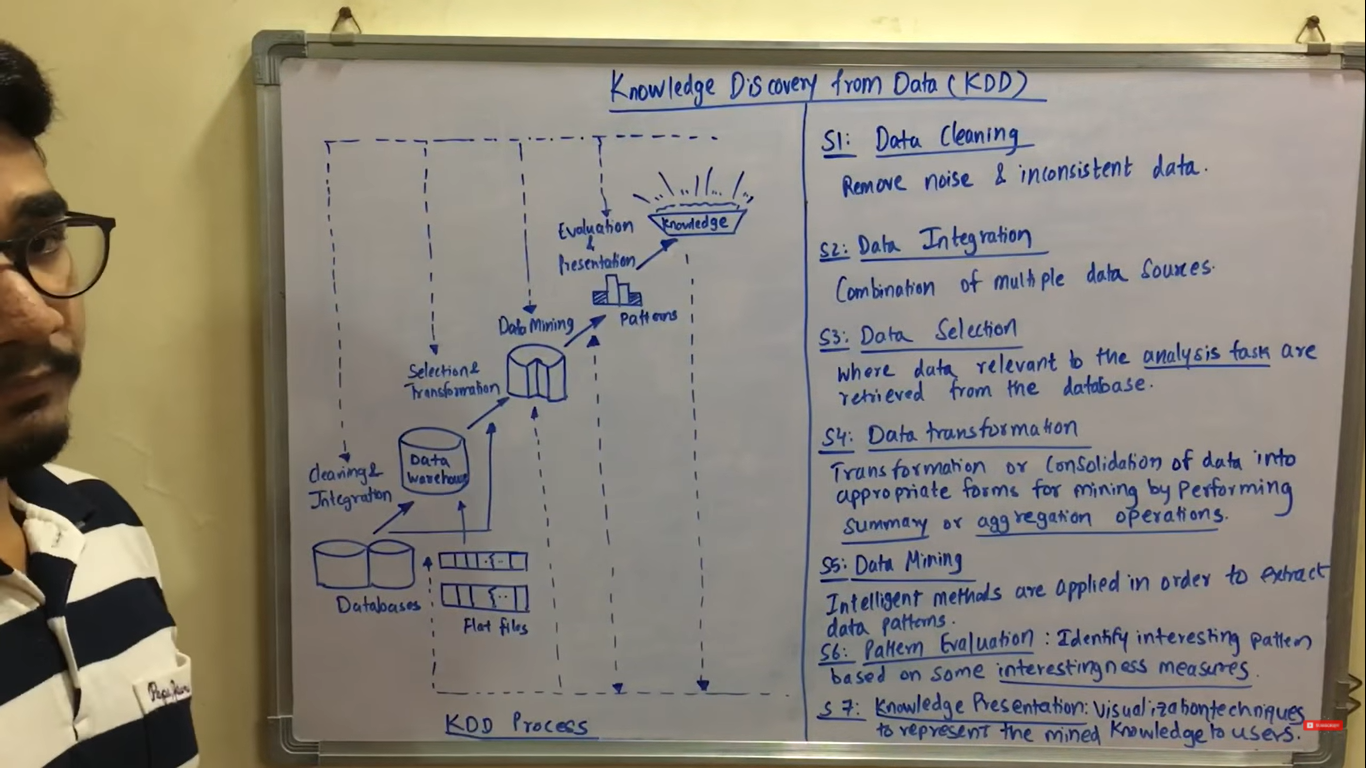 Knowledge Discovery from Data (KDD)
Evaluation
&
Presentation
Knowledge
Patterns
Data Mining
Selection &
Transformation
Data
Warehouse
Cleaning &
Integration
Databases
Flat files
KDD Process
S1: Data Cleaning
Remove noise & inconsistent data.
S2: Data Integration
Combination of multiple data sources.
S3: Data Selection
where data relevant to the analysis task are
retrieved from the database.
S4: Data transformation
Transformation or Consolidation of data into
appropriate forms for mining by Performing
summary or aggregation operations.
S5: Data Mining
Intelligent methods are applied in order to extract
data patterns.
S6: Pattern Evaluation : Identify interesting pattern
based on some interestingness measures.
S7: Knowledge Presentation: Visualization techniques
to represent the mined Knowledge to users.